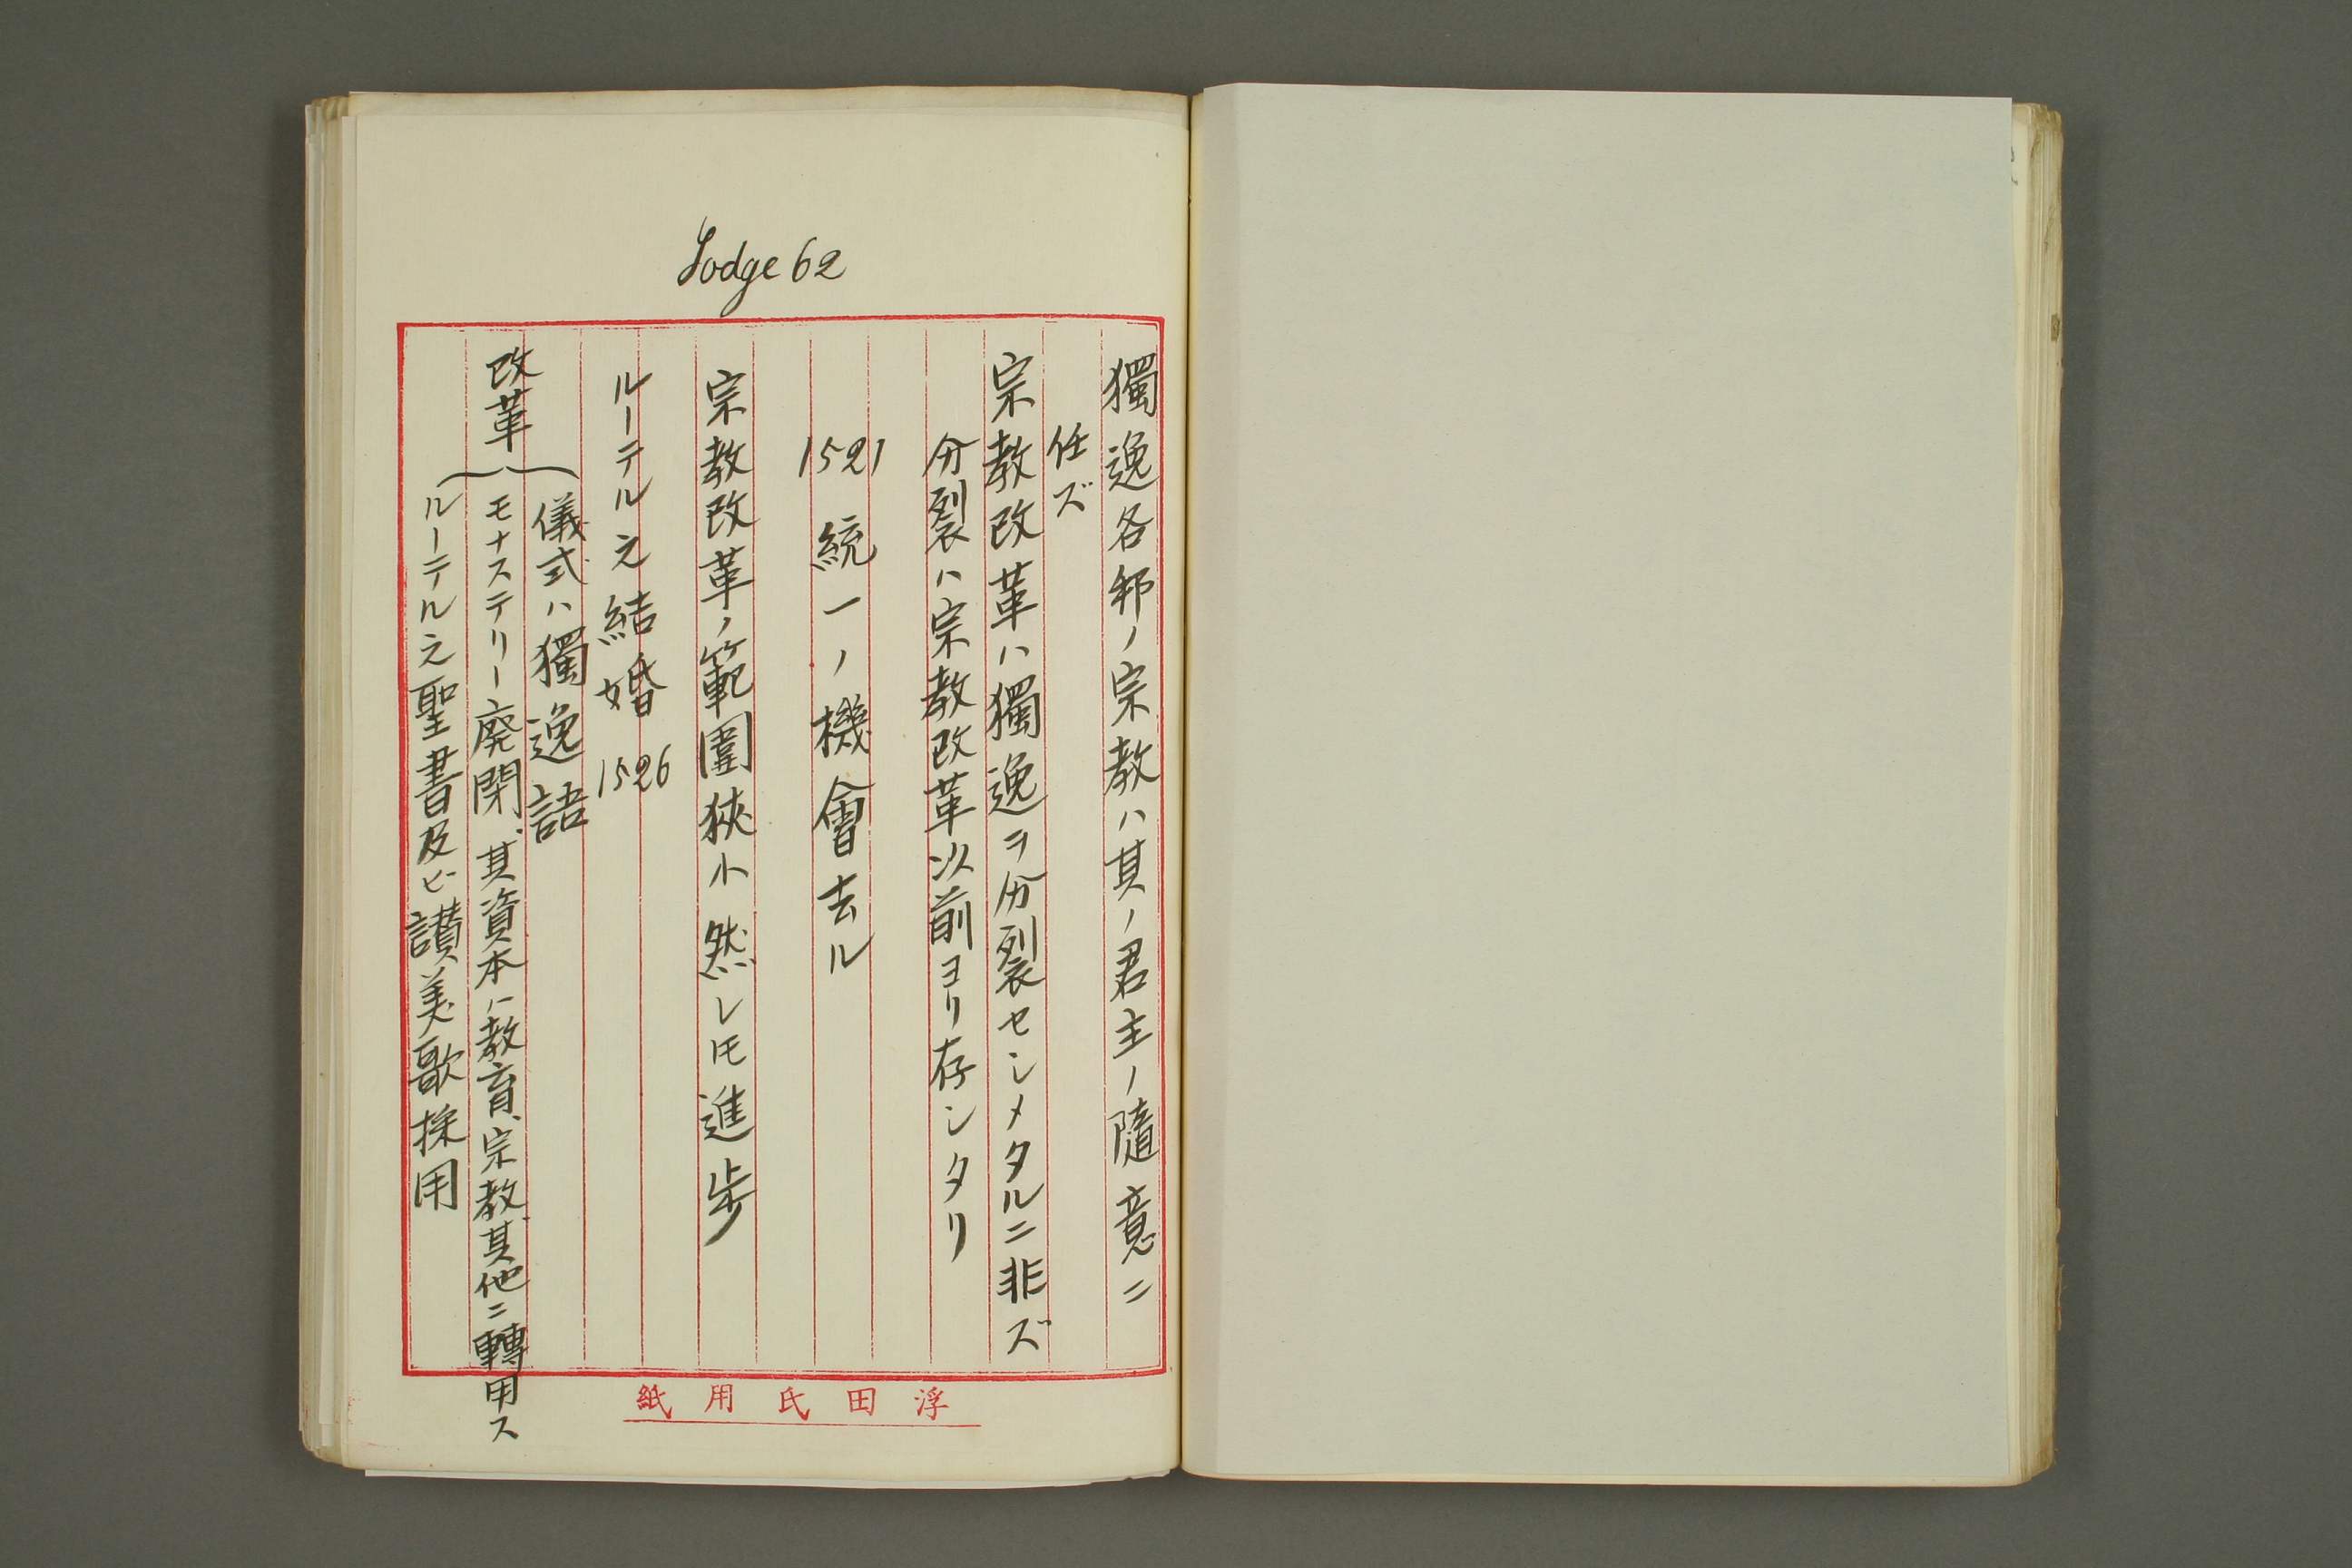 Lodge 62
獨逸各邦ノ宗教ハ其ノ君主ノ隨意ニ
任ズ
宗教改革ハ獨逸ヲ分裂セシメタルニ非ズ
分裂ハ宗教改革以前ヨリ存シタリ
1521 統一ノ機會去ル
宗教改革ノ範圍狹小然レ𪜈進步
ルーテル之結婚 1526
改革
儀式ハ獨逸語
モナステリー廃閉、其資本ハ教育、宗教、其他ニ轉用ス
ルーテル之聖書及ビ讃美歌採用
浮田氏用紙